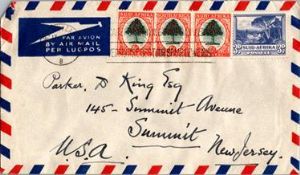 PAR AVION
BY AIR MAIL
PER LUGPOS
SUID-AFRIKA
Parker, D King Esq
145- Summit Avenue
Summit
New Jersey.
U.S.A.